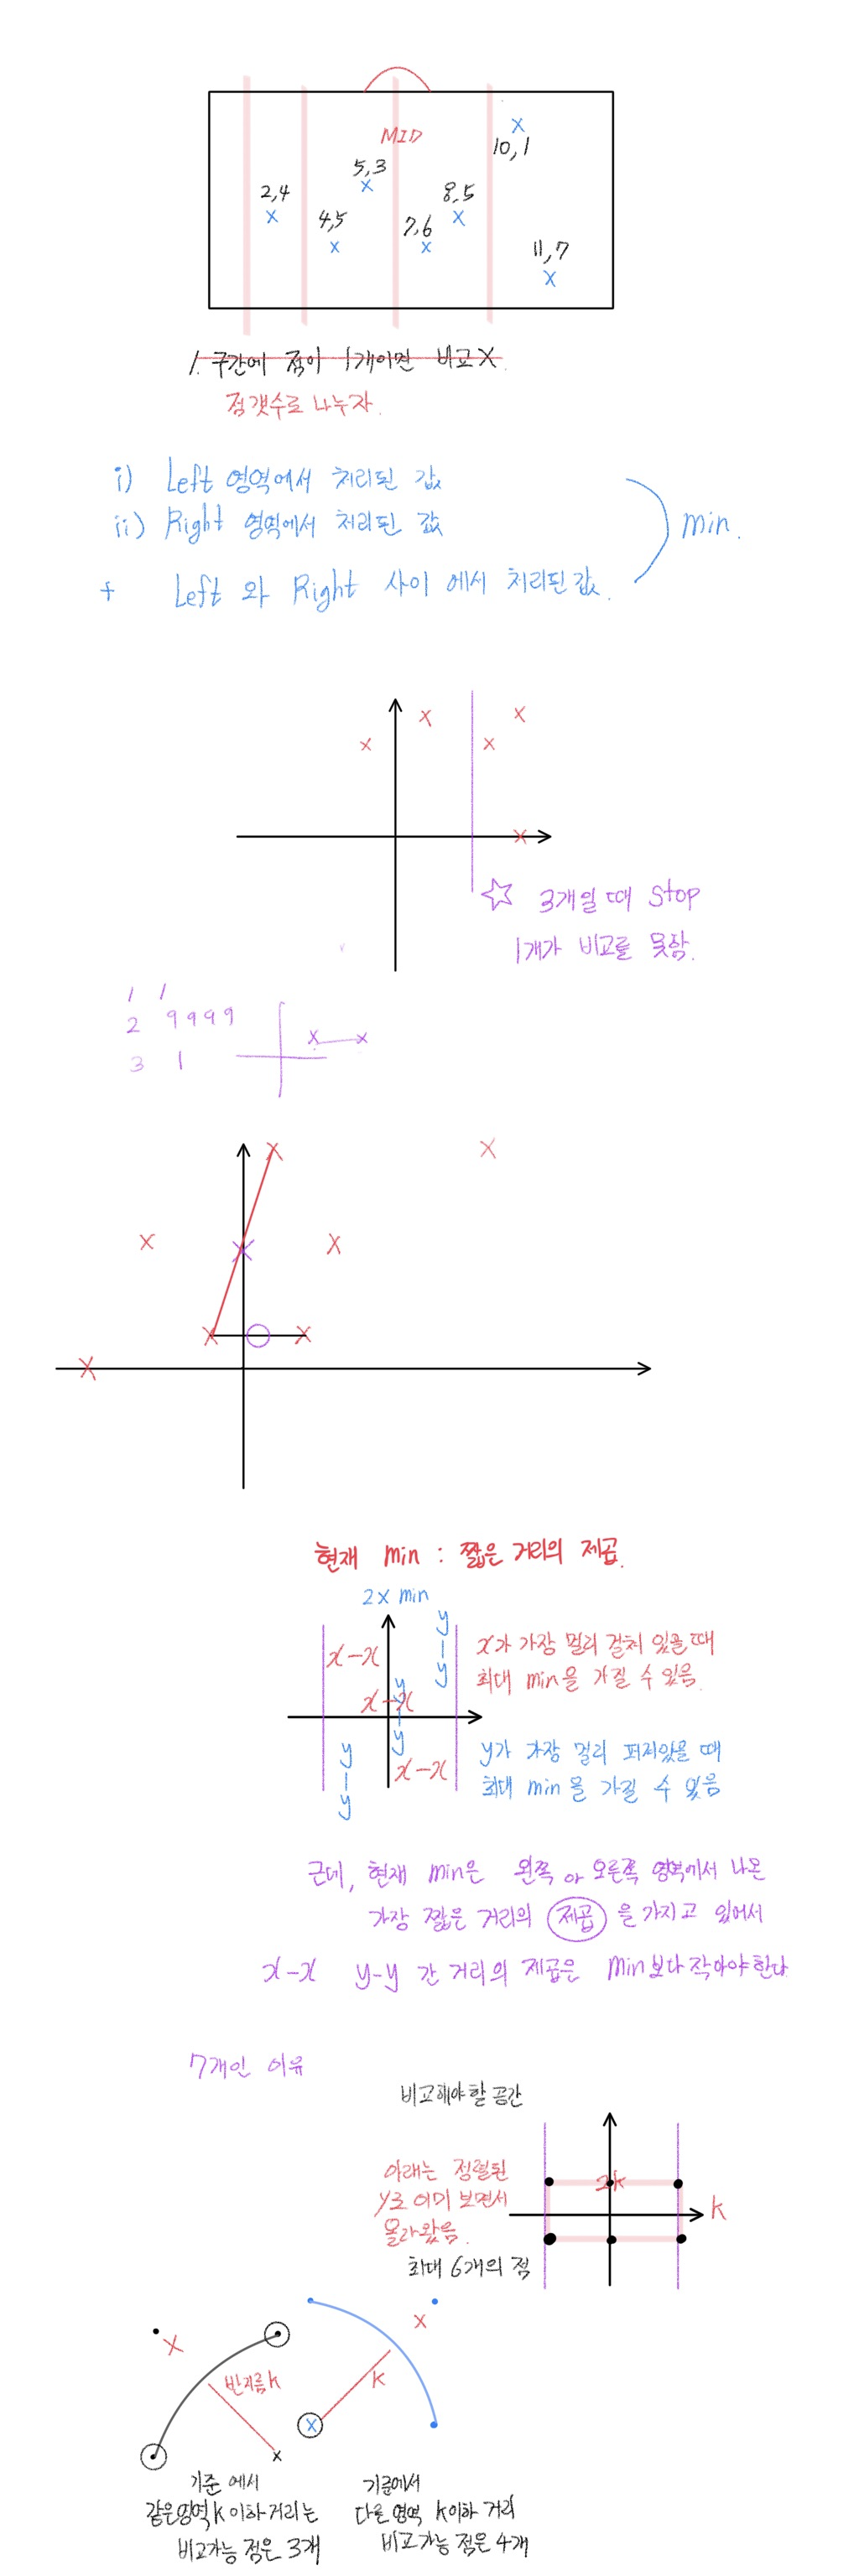 MID
10,1
5,3
2,4
8,5
4,5
7,6
11,7
1. 구간에 점이 1개이면 비교X.
점갯수로 나누자.
i) Left 영역에서 처리된 값
ii) Right 영역에서 처리된 값
min.
+ Left 와 Right 사이 에서 처리된값.
☆ 3개일 때 Stop
1개가 비교를 못함.
1 1
2 9999
3 1
현재 min : 짧은 거리의 제곱.
2x min
x-x
y-y
x가 가장 멀리 걸쳐 있을때
최대 min을 가질 수 있음.
x-x
y-y
y-y
x-x
y가 가장 멀리 퍼져있을 때
최대 min을 가질 수 있음
근데, 현재 min은 왼쪽 or 오른쪽 영역에서 나온
가장 짧은 거리의 제곱 을 가지고 있어서
x-x y-y 간 거리의 제곱은 min보다 작아야한다
7개인 이유
비교해야할 공간
아래는 정렬된
y로 이미 보면서
올라왔음.
2k
k
최대 6개의 점
반지름k
k
기준 에서
같은영역 k이하거리는
비교가능 점은 3개
기준에서
다른 영역 k이하 거리
비교가능 점은 4개